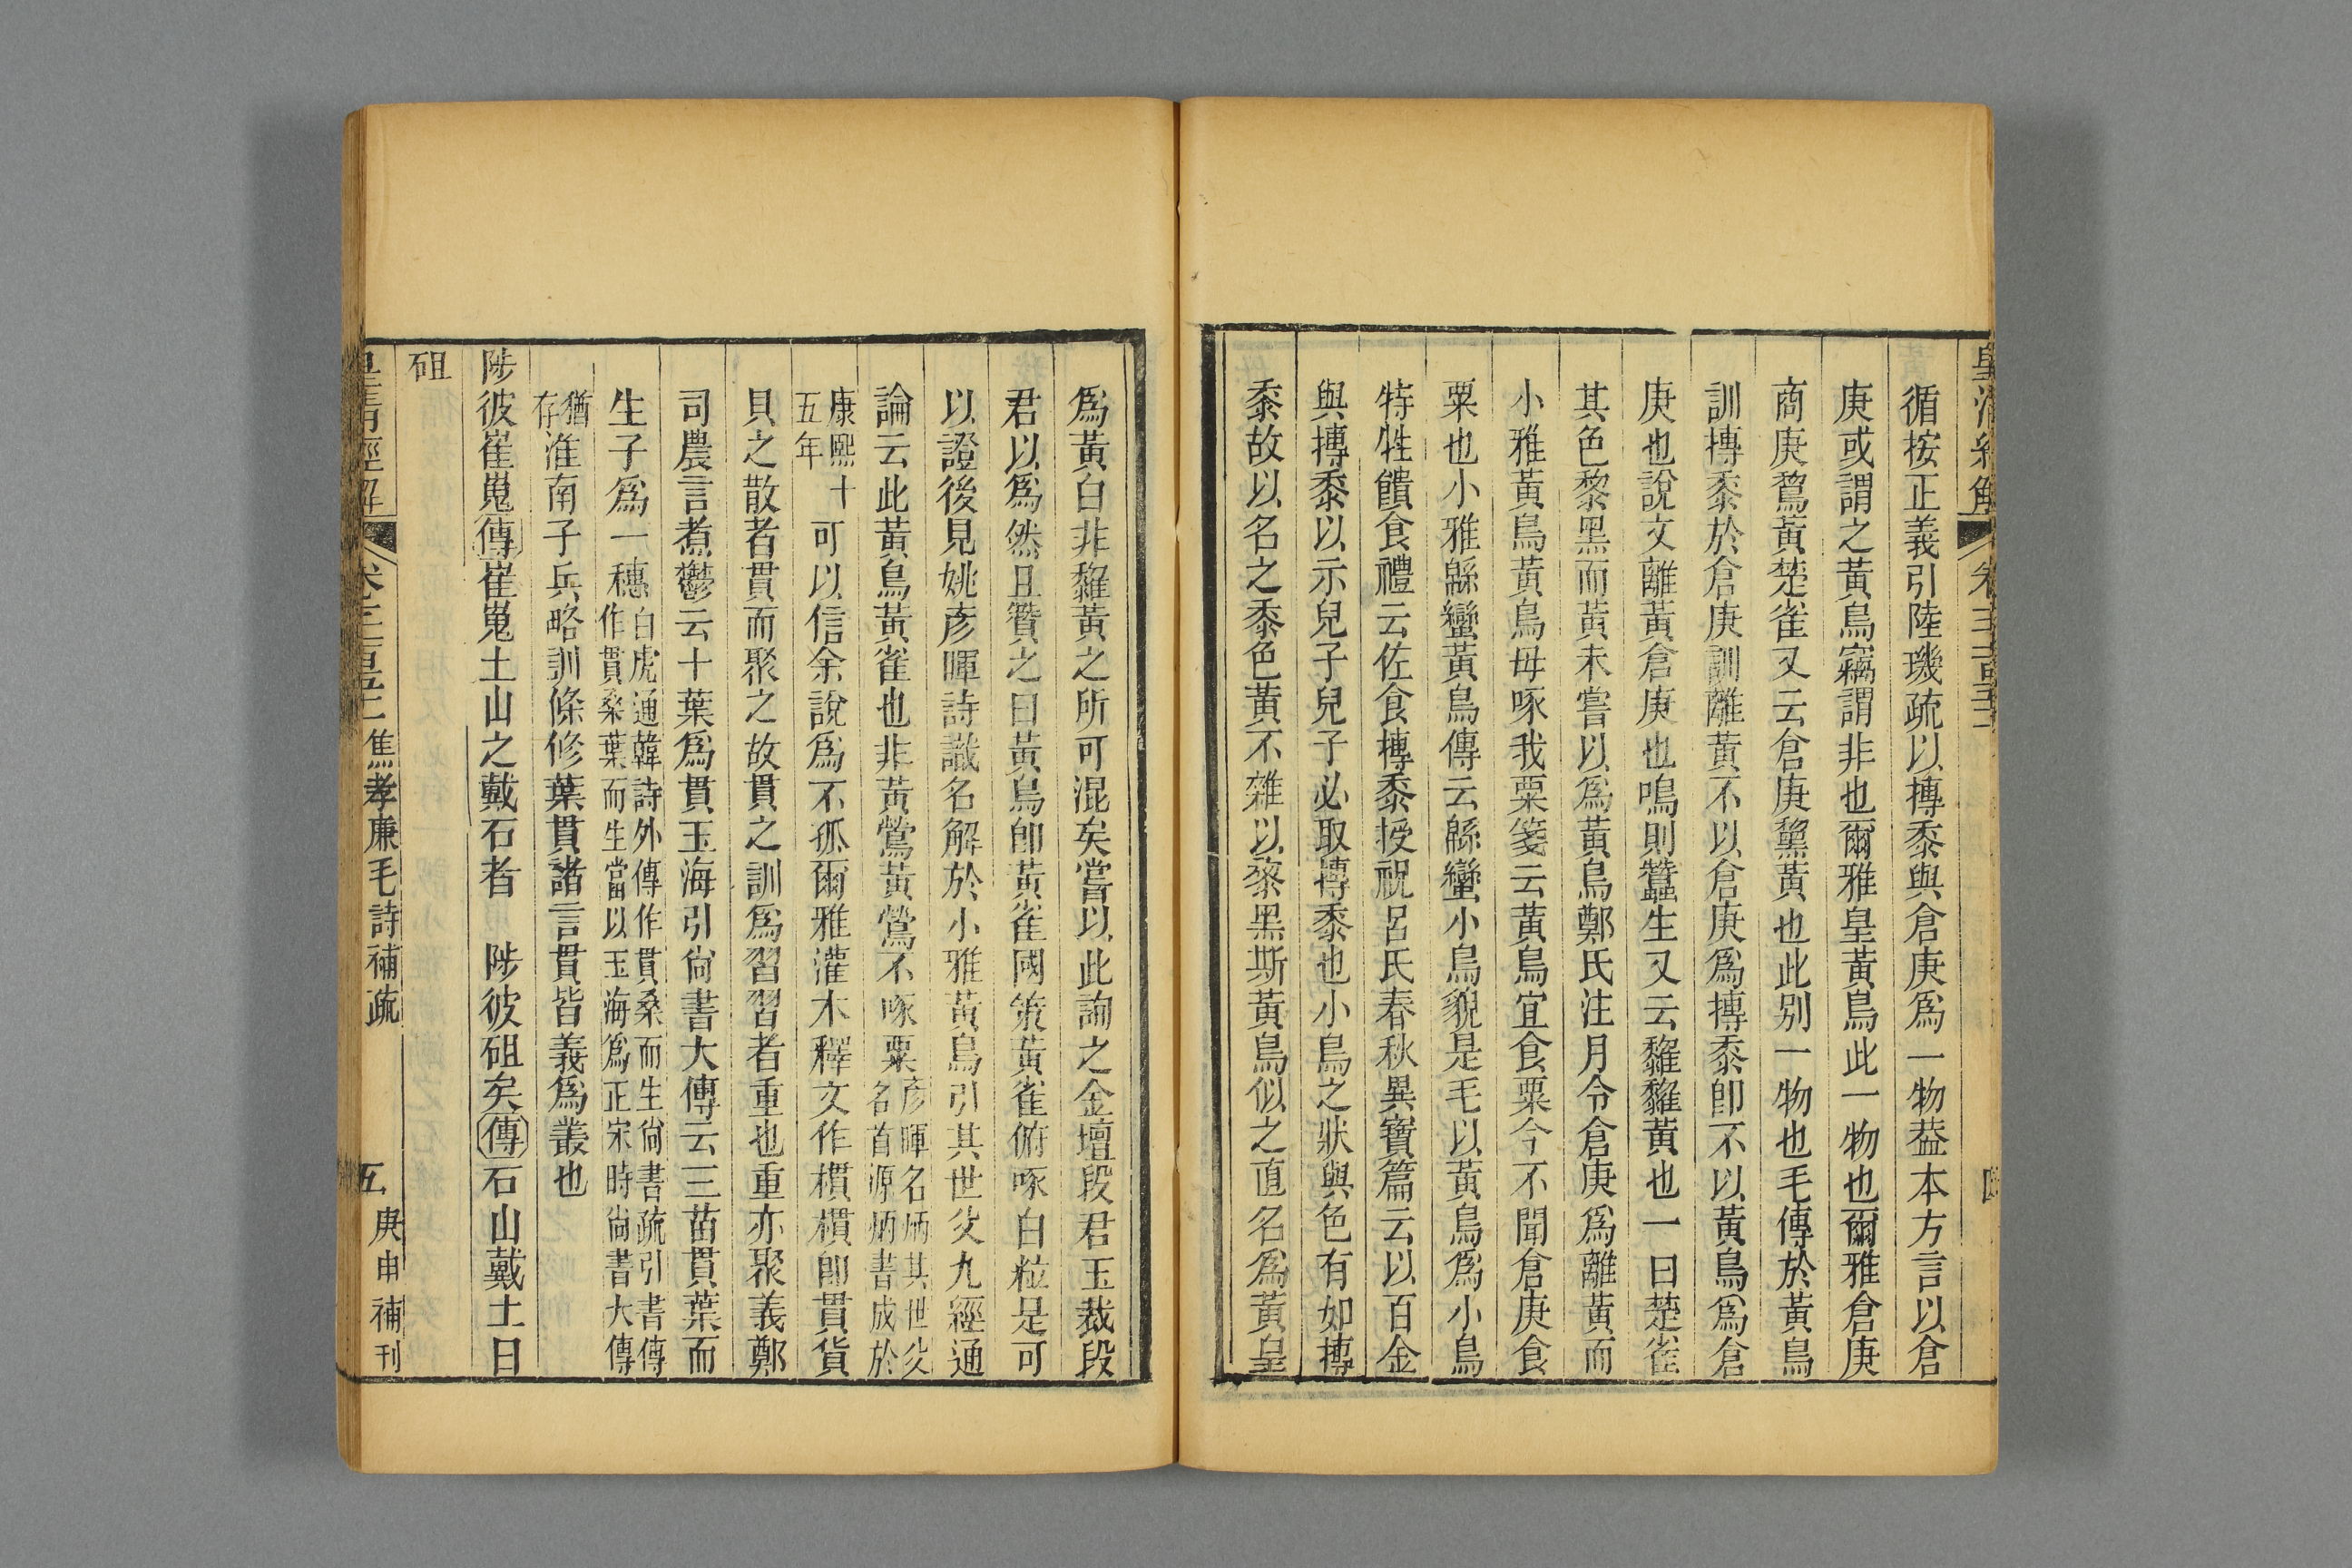 循按正義引陸璣疏以摶黍與倉庚爲一物葢本方言以倉
庚或謂之黃鳥竊謂非也爾雅皇黃鳥此一物也爾雅倉庚
商庚鵹黃楚雀又云倉庚黧黃也此别一物也毛傳於黃鳥
訓摶黍於倉庚訓離黃不以倉庚爲摶黍卽不以黃鳥爲倉
庚也說文離黃倉庚也鳴則蠶生又云雞黃也一曰楚雀
其色黎黑而黃未嘗以爲黃鳥鄭氏注月令倉庚爲離黃而
小雅黃鳥黃鳥毋啄我粟箋云黃鳥宜食粟今不聞倉庚食
粟也小雅緜蠻黃鳥傳云緜蠻小鳥貌是毛以黃鳥爲小鳥
特牲饋食禮云佐食摶黍授祝呂氏春秋異寶篇云以百金
與摶黍以示兒子兒子必取摶黍也小鳥之狀與色有如摶
黍故以名之黍色黃不雜以黎黑斯黃鳥似之直名爲黃皇
爲黃白非鵹黃之所可混矣嘗以此詢之金壇段君玉裁段
君以爲然且贊之曰黃鳥卽黃雀國策黃雀俯啄白粒是可
以證後見姚彥暉詩識名解於小雅黃鳥引其世父九經通
論云此黃鳥黃雀也非黃鶯黃鶯不啄粟彥暉名炳其世父
名首源炳書成於
康熙十
五年可以信余說爲不孤爾雅灌木釋文作樌樌卽貫貨
貝之散者貫而聚之故貫之訓爲習習者重也重亦聚義鄭
司農言煮鬱云十葉爲貫玉海引尙書大傳云三苗貫葉而
生子爲一穗白虎通韓詩外傳作貫桑而生尙書疏引書傳
作貫桑葉而生當以玉海爲正宋時尙書大傳
猶
存淮南子兵略訓條修葉貫諸言貫皆義爲叢也
陟彼崔嵬傳崔嵬土山之戴石者　陟彼砠矣傳石山戴土曰
砠
卷
焦孝廉毛詩補疏
五
庚申補刊